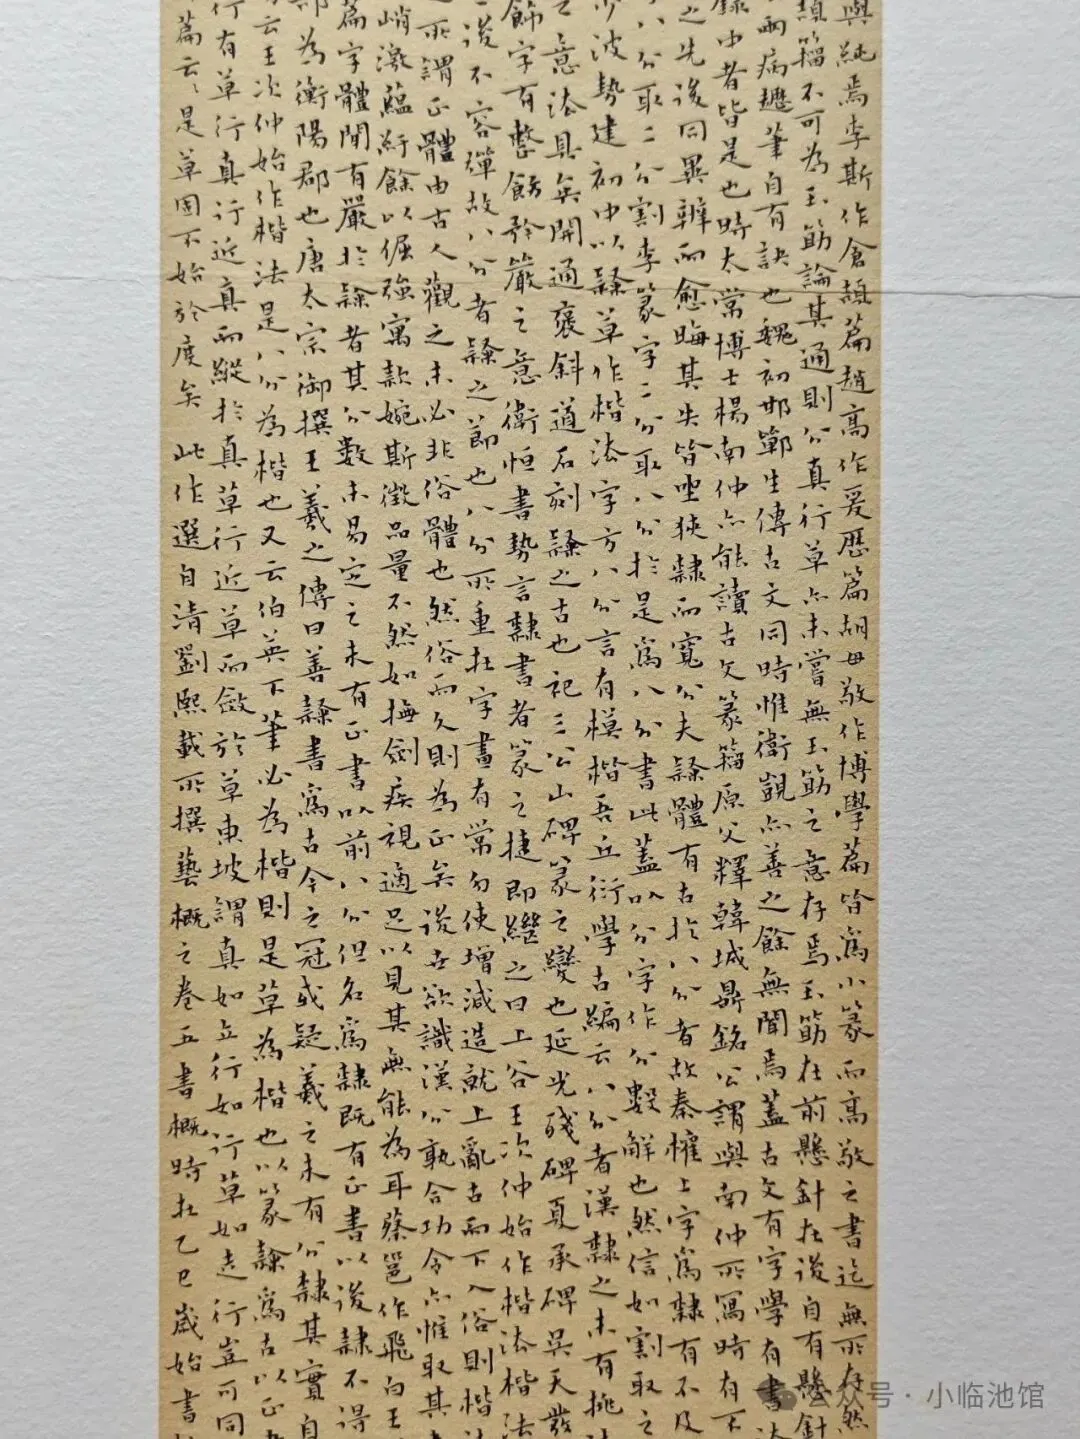 與純焉李斯作倉頡篇趙高作爰歷篇胡毋敬作博學篇皆為小篆而高敬之書迄無所存然
頡籀不可為玉筯論其通則分真行草亦未嘗無玉筯之意存焉玉筯在前懸針在後自有懸針
兩病韙筆自有訣也魏初邯鄲生傳古文同時惟衛覬亦善之餘無聞焉蓋古文有字學有書法
錄中者皆是也時太常博士楊南仲亦能讀古文篆籀原父釋韓城鼎銘公謂與南仲所寫時有不
之先後同異辨而愈晦其失皆坐狹隸而寬分夫隸體有古於八分者故秦權上字為隸有不及
八分取二分割李篆字二分取八分於是為八分書此蓋以分字作分數解也然信如割取之
少波勢建初中以隸草作楷法字方八分言有模楷吾丘衍學古編云八分者漢隸之未有挑法
之意法具矣開通褒斜道石刻隸之古也祀三公山碑篆之變也延光殘碑夏承碑吳天發
飾字有整飭矜嚴之意衛恒書勢言隸書者篆之捷即繼之曰上谷王次仲始作楷法楷法
沒不容殫故八分者隸之節也八分所重在字畫有常勿使增減造就上亂古而下入俗則楷法
之所謂正體由古人觀之未必非俗體也然俗而久則為正矣後世欲識漢分孰合功令亦惟取其
峭激蘊紆餘以倔強寓款婉斯徵品量不然如撫劍疾視適足以見其無能為耳蔡邕作飛白王
篇字體間有嚴於隸者其分數未易定之未有正書以前八分但名為隸既有正書以後隸不得
郡為衡陽郡也唐太宗御撰王羲之傳曰善隸書為古今之冠或疑羲之未有分隸其實自
云王次仲始作楷法是八分為楷也又云伯英下筆必為楷則是草為楷也以篆隸為古以正書
行有草行真行近真而縱於真草行近草而斂於草東坡謂真如立行如行草如走行豈可同
篇云云是草固不始於度矣 此作選自清劉熙載所撰藝概之卷五書概時在乙巳歲始書
公众号·小临池馆